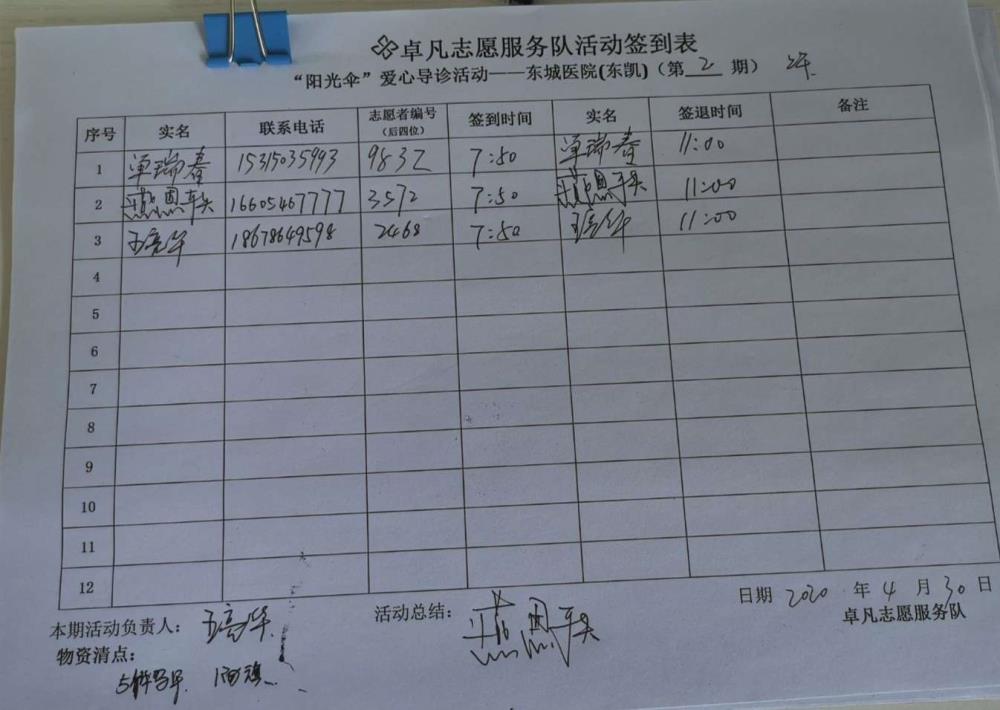 卓凡志愿服务队活动签到表
“阳光伞”爱心导诊活动——东城医院(东凯)(第 2 期)
序号 实名 联系电话 志愿者编号(后四位) 签到时间 实名 签退时间 备注
1 卓瑞春 15315035993 9832 7:50 卓瑞春 11:00
2 16605467777 3572 7:50 11:00
3 18678649598 2468 7:50 11:00
4
5
6
7
8
9
10
11
12
日期 2020 年 4 月 30 日
卓凡志愿服务队
本期活动负责人: 活动总结:
物资清点: